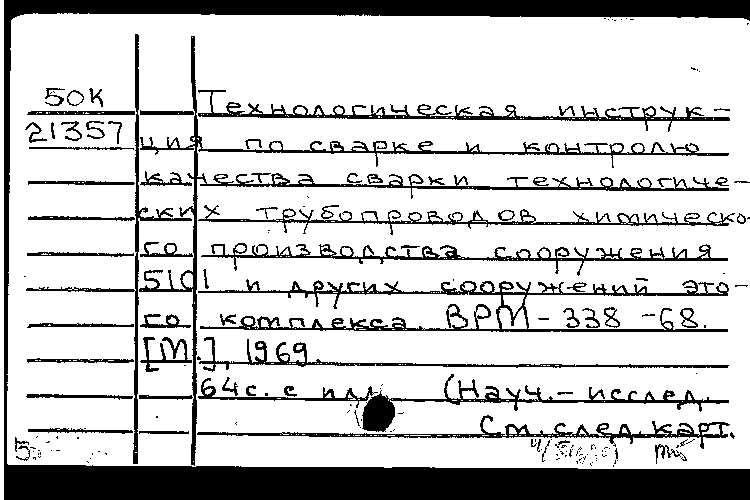 50К Технологическая инструк-
21357 ция по сварке и контролю
качества сварки технологиче-
ских трубопроводов химическо-
го производства сооружения
5101 и других сооружений это-
го комплекса. ВРМ-338-68.
[М.], 1969.
64с. с илл. (Науч.-исслед.
См. след. карт.
5